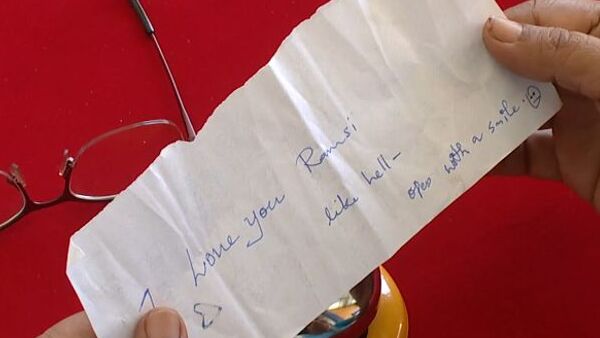 Love you Ramsi
like hell -
with a smile.